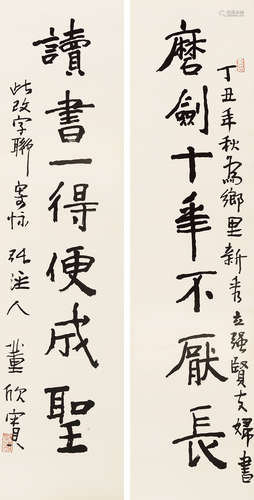 磨劍十年不厭長
丁丑年秋為鄉里新秀立强賢夫婦書
讀書一得便成聖
此改字聯寄怀
董欣賓